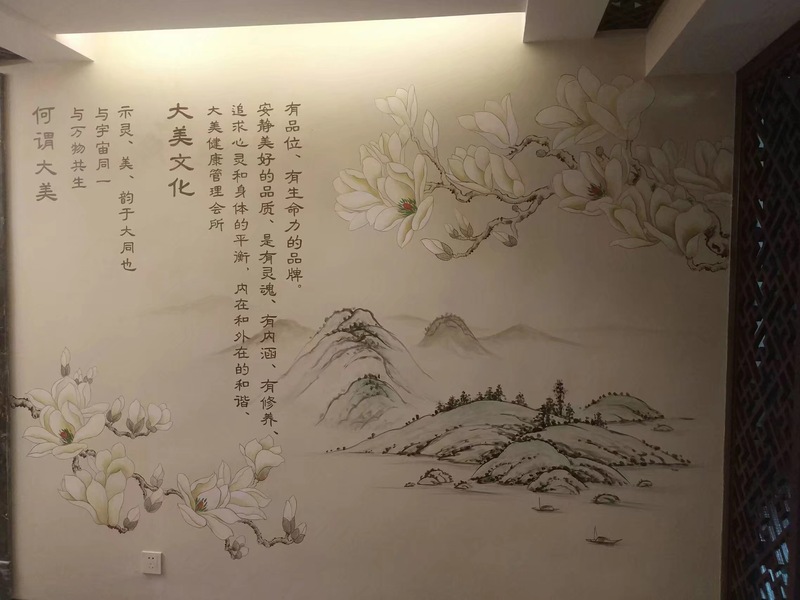 何谓大美
与万物共生
与宇宙同一
示灵、美、韵于大同也
大美文化
大美健康管理会所
追求心灵和身体的平衡，内在和外在的和谐、
安静美好的品质、是有灵魂、有内涵、有修养、
有品位、有生命力的品牌。